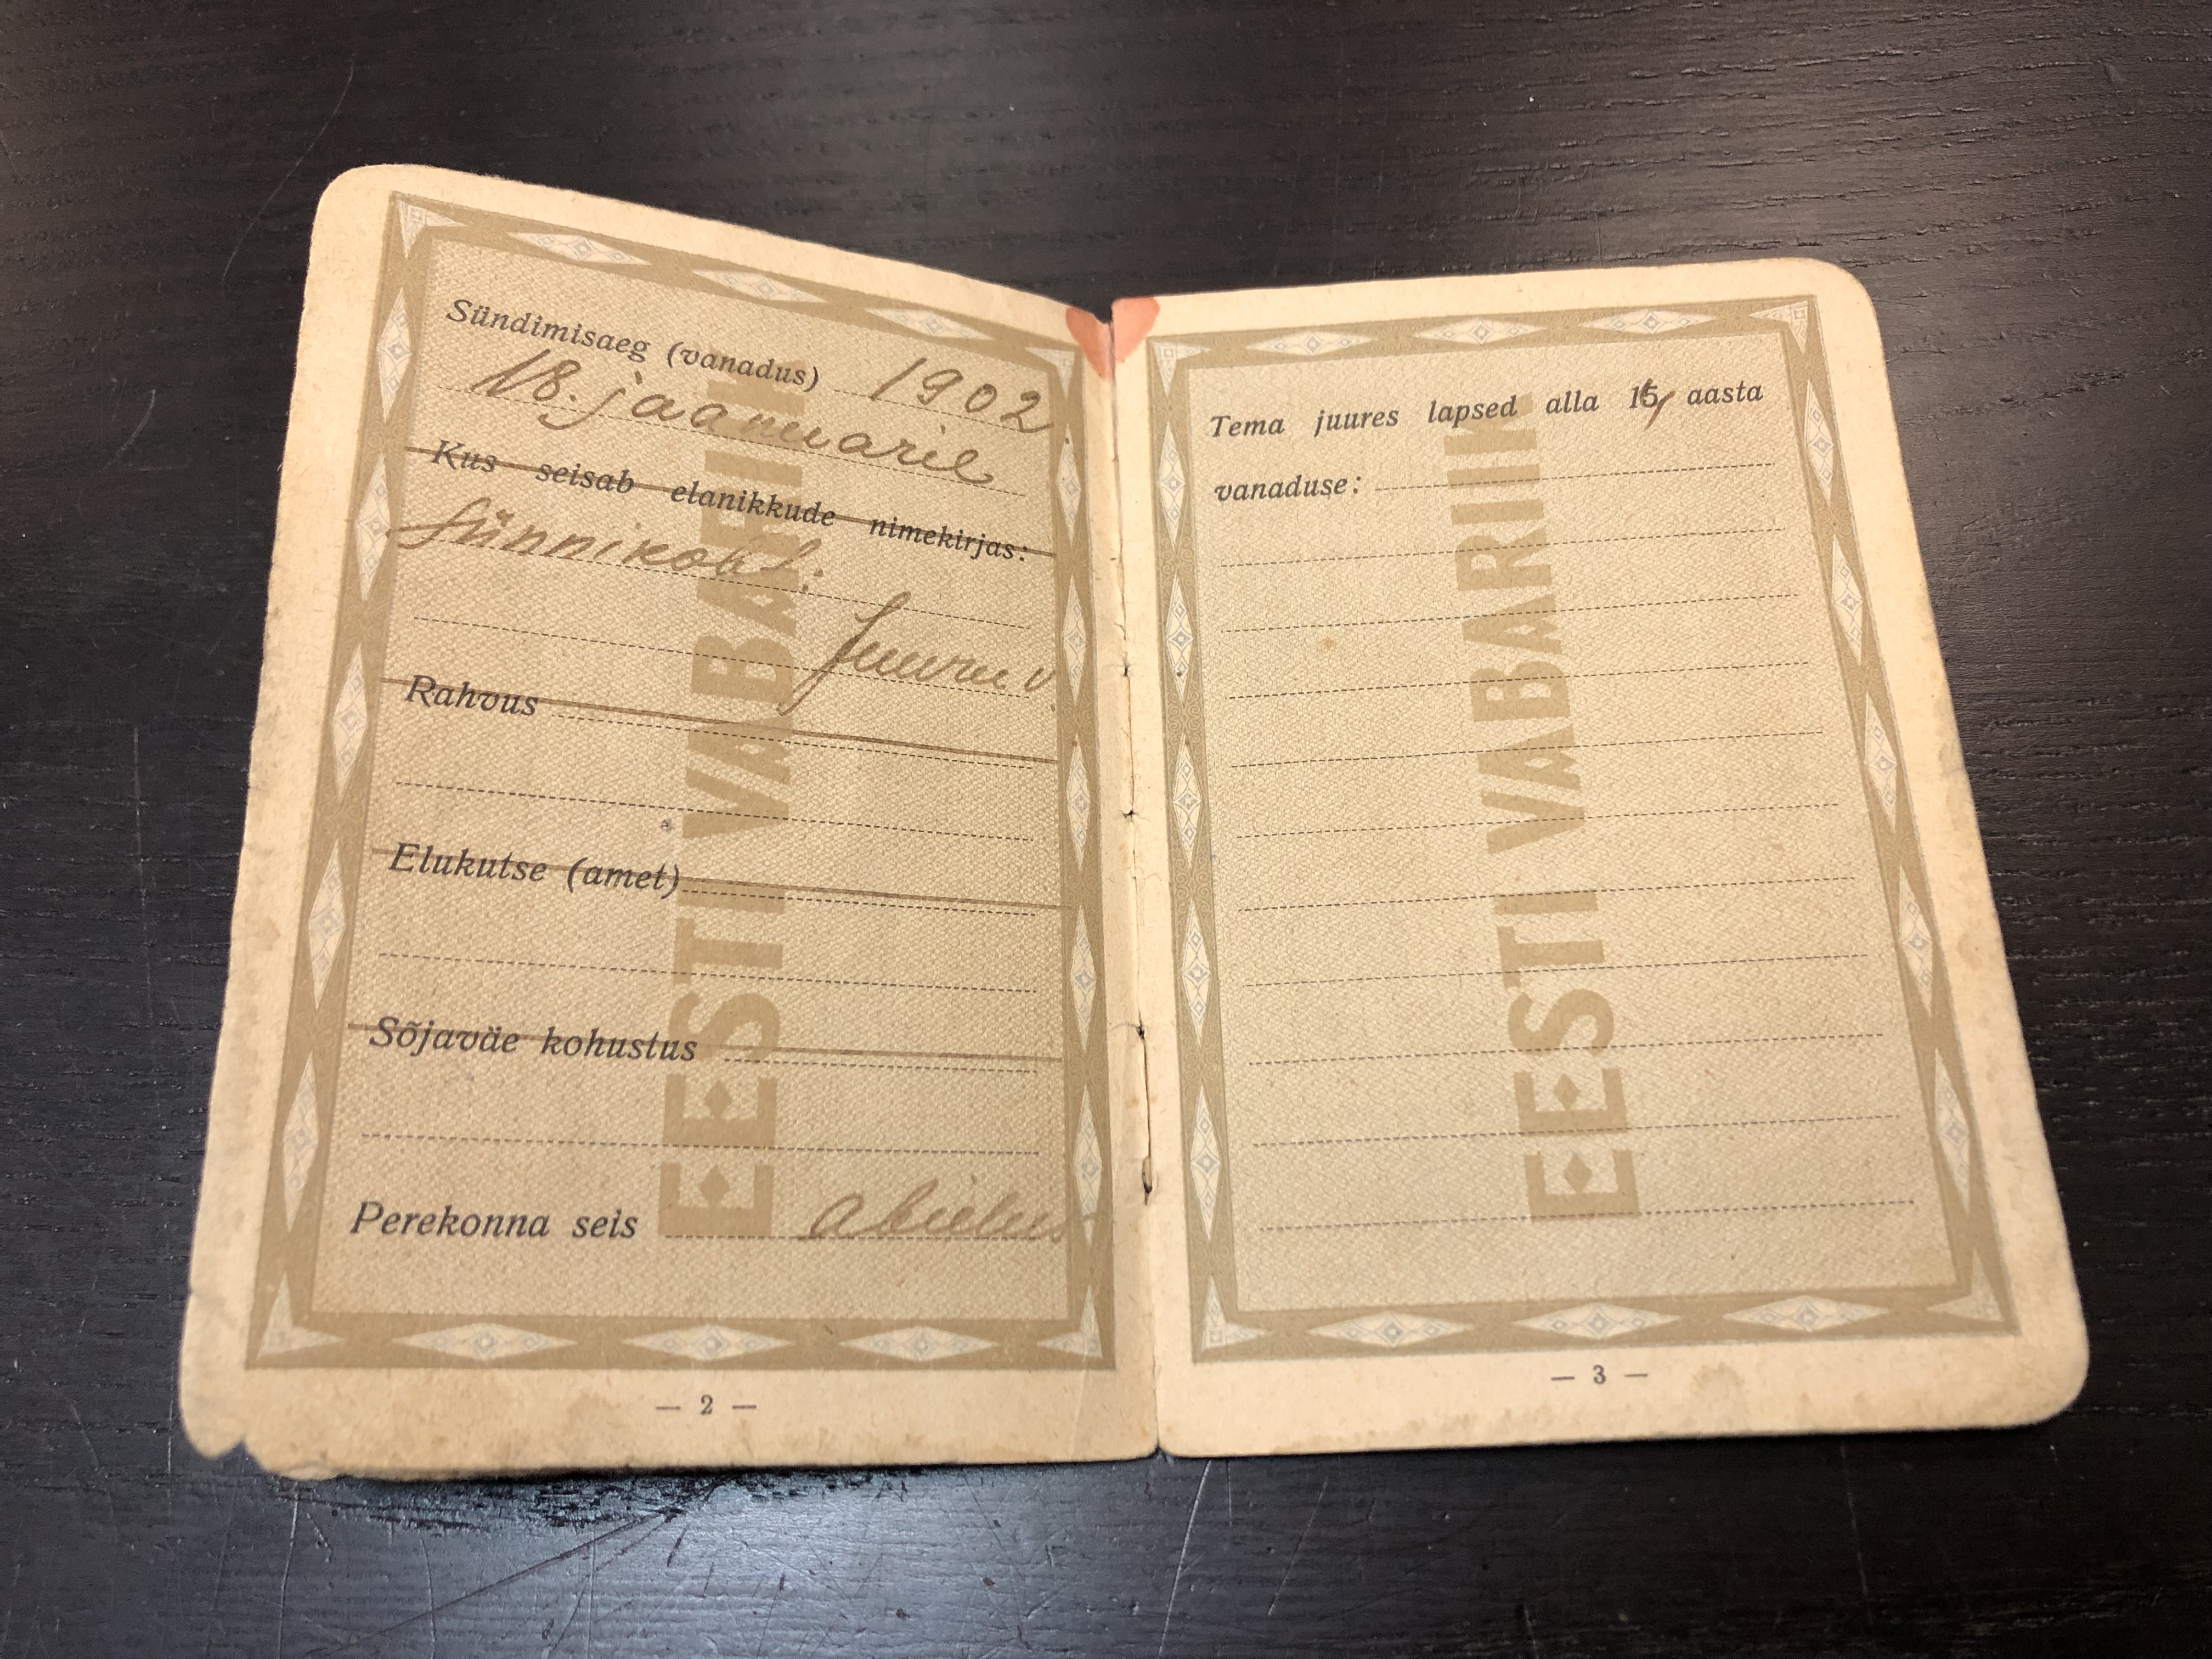 Sündimisaeg (vanadus) 1902.
18. jaanuaril
Kus seisab elanikkude nimekirjas:
Sünnikoht:
Juuru v.
Rahvus
Elukutse (amet)
Sõjaväe kohustus
Perekonna seis abielus
EESTI VABARIIK
— 2 —
Tema juures lapsed alla 15 aasta
vanaduse:
EESTI VABARIIK
— 3 —